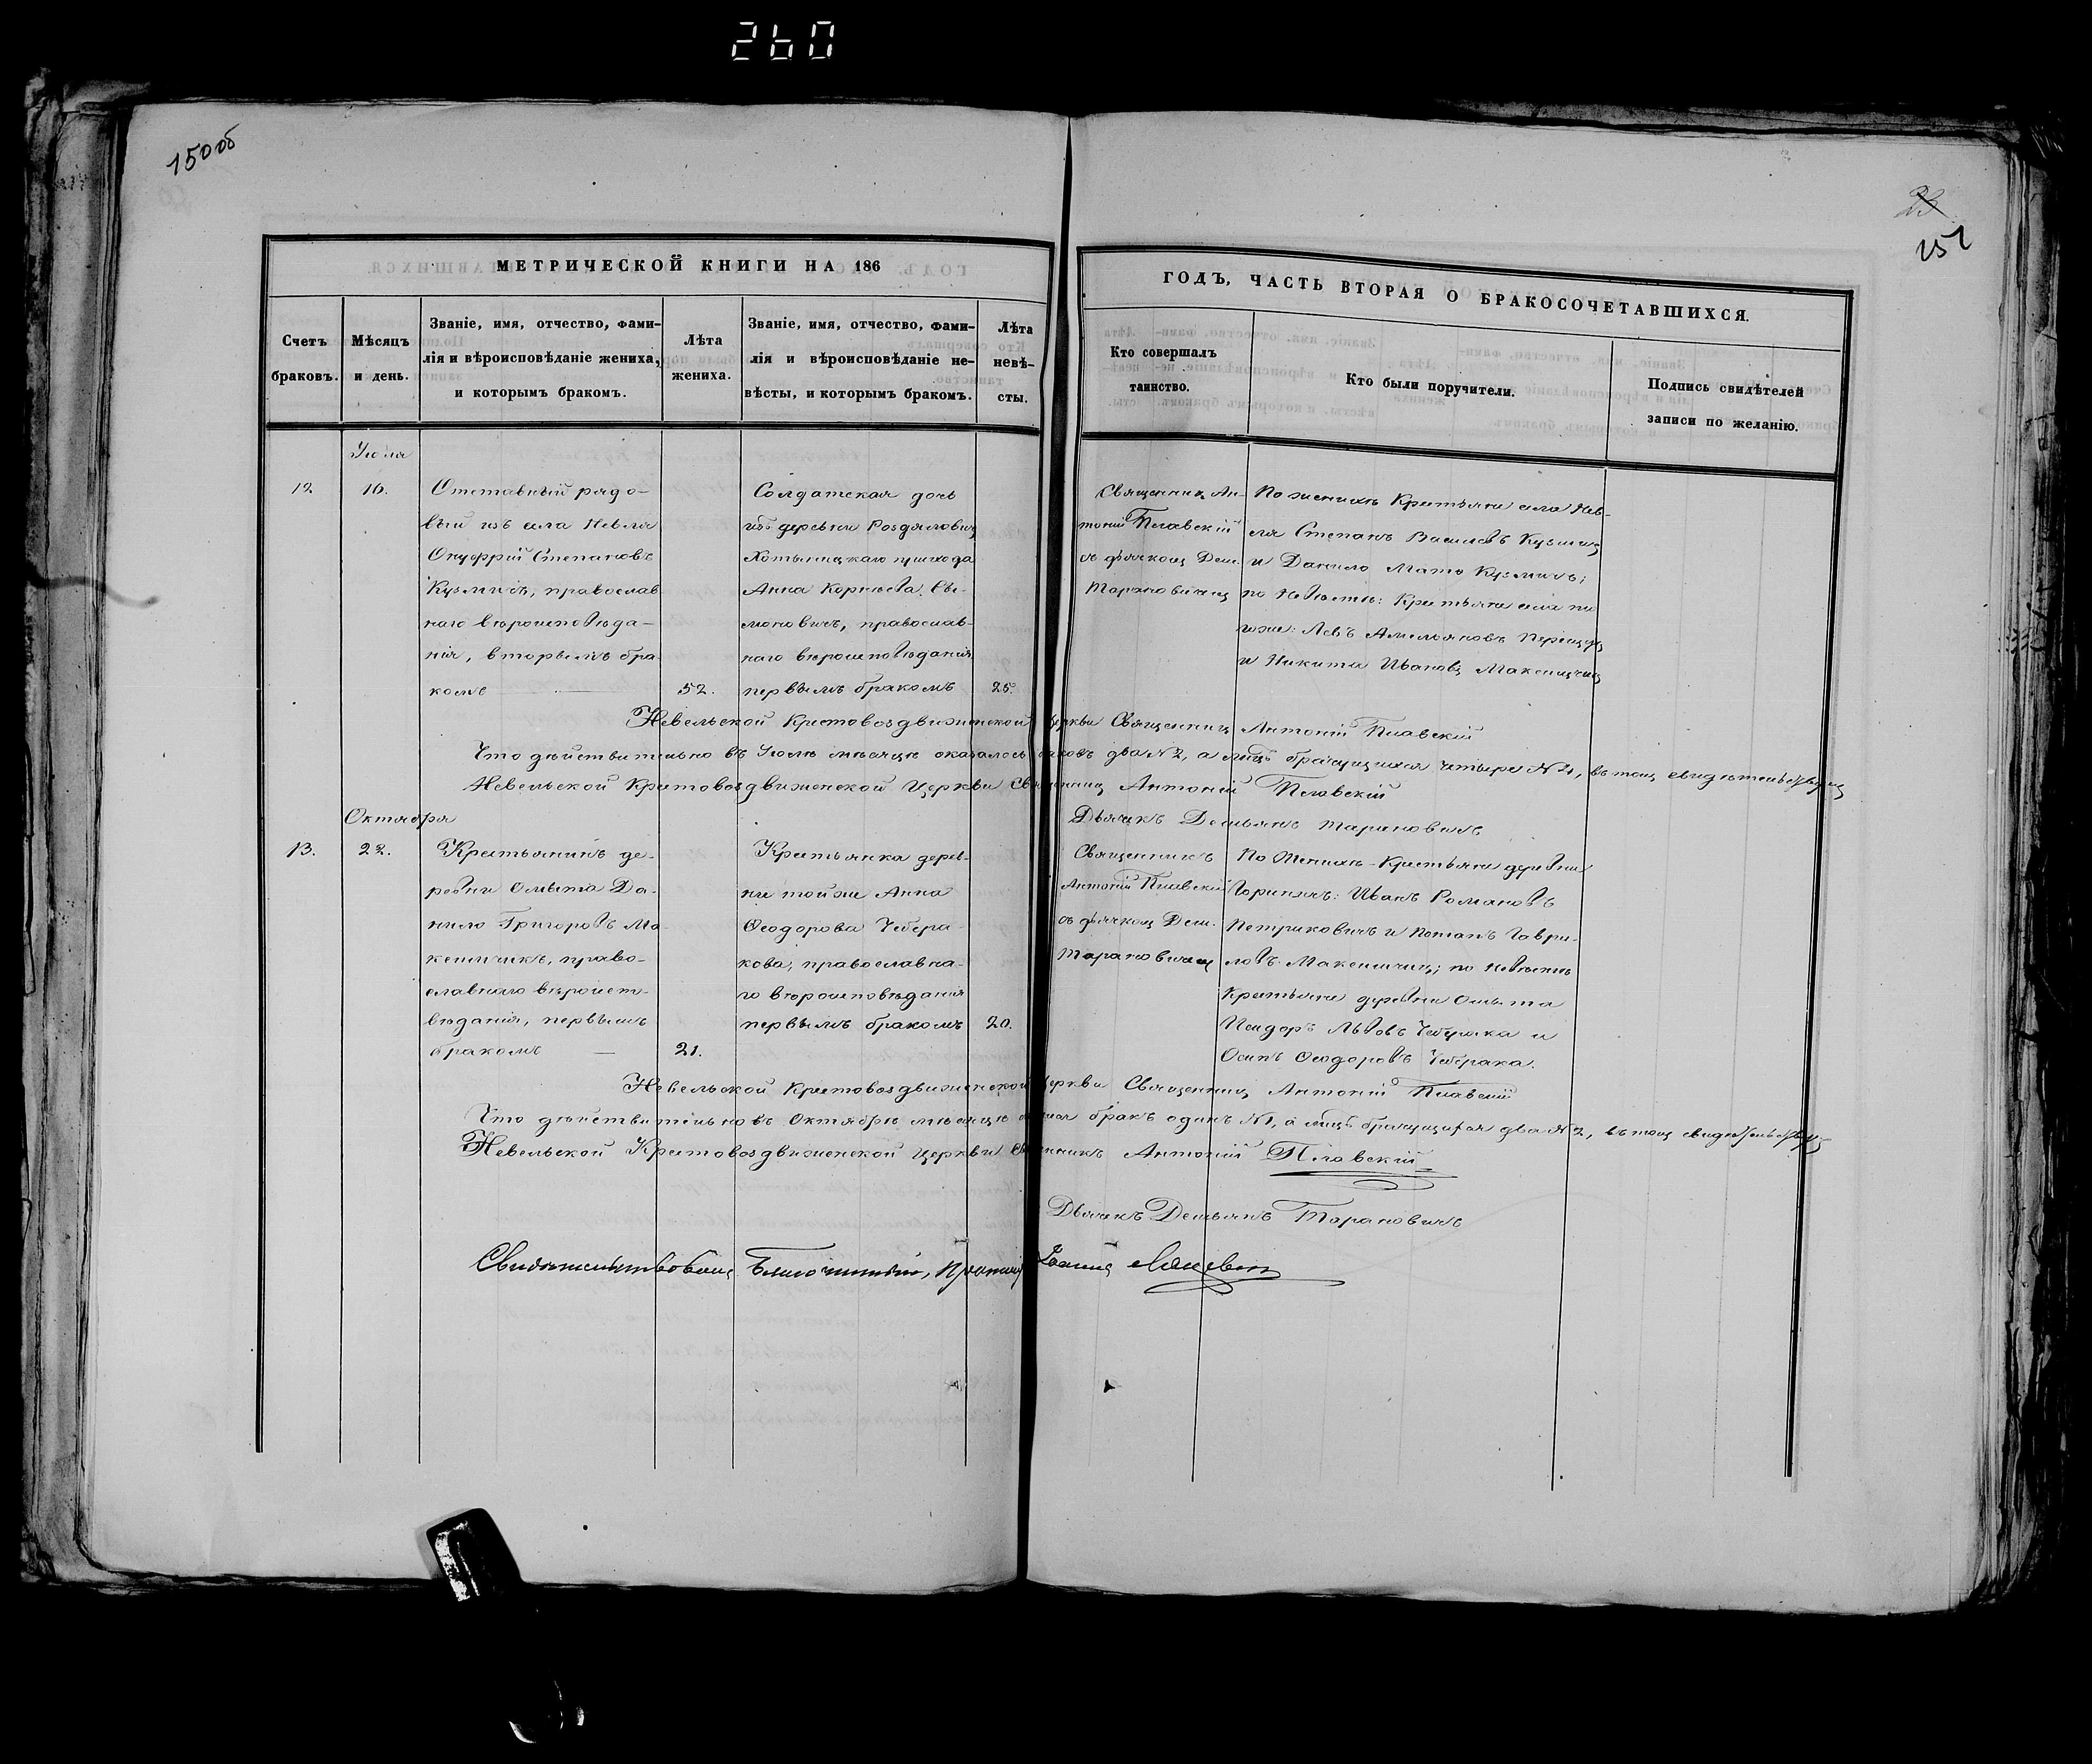 260
150об
23
151
МЕТРИЧЕСКОЙ КНИГИ НА 186
ГОДЪ, ЧАСТЬ ВТОРАЯ О БРАКОСОЧЕТАВШИХСЯ.
Счетъ браковъ.
Мѣсяцъ и день.
Званіе, имя, отчество, фами-
лія и вѣроисповѣданіе жениха,
и которымъ бракомъ.
Лѣта
жениха.
Званіе, имя, отчество, фами-
лія и вѣроисповѣданіе не-
вѣсты, и которымъ бракомъ.
Лѣта
невѣ-
сты.
Кто совершалъ
таинство.
Кто были поручители.
Подпись свидѣтелей
записи по желанію.
Іюля
12
16.
Отставный рядо-
вый изъ села Невля
Онуфрій Степановъ
Кузмичъ, православ
наго вѣроисповѣда-
нія, вторымъ бра
комъ
52.
Солдатская дочь
изъ деревни
прихода
Анна Корнѣева
православ-
наго вѣроисповѣданія
первымъ бракомъ
25.
Священникъ Ан-
тоній Плавскій
съ дьячкомъ Дем.
Тарановичемъ
По женихѣ Крестьяне села Нев-
ля Степанъ Василевъ Кузмичъ
и Данило Кузмичъ;
по невѣстѣ: Крестьяне села то
гоже: Левъ Амельяновъ
и Никита Ивановъ Максимчикъ
Невельской Крестовоздвиженской Церкви Священникъ Антоній Плавскій
Что дѣйствительно въ Іюлѣ мѣсяцѣ оказалось браковъ два №2, а лицъ брачущихся четыре №4, въ томъ свидѣтельствуемъ
Невельской Крестовоздвиженской Церкви Священникъ Антоній Плавскій
Дьячекъ Демьянъ Тарановичъ
Октября
13.
22.
Крестьянинъ де-
ревни Омыта Да-
нило Григоровъ Ма-
ксимчикъ, право-
славнаго вѣроиспо-
вѣданія, первымъ
бракомъ
21.
Крестьянка дерев-
ни тойже Анна
Ѳеодорова Чебера-
кова, православна-
го вѣроисповѣданія
первымъ бракомъ
20.
Священникъ
Антоній Плавскій
съ дьячкомъ Дем.
Тарановичемъ
По Женихѣ - Крестьяне деревни
Иванъ Романовъ
Петриковичъ и Потапъ Гаври-
ловъ Максимчикъ; по невѣстѣ
Крестьяне деревни Омыта
Львовъ Чеберака и
Осипъ Ѳеодоровъ Чеберака.
Невельской Крестовоздвиженской Церкви Священникъ Антоній Плавскій
Что дѣйствительно въ Октябрѣ мѣсяцѣ бракъ одинъ №1, а лицъ брачущихся два №2, въ томъ свидѣтельствуемъ
Невельской Крестовоздвиженской Церкви Священникъ Антоній Плавскій
Дьячекъ Демьянъ Тарановичъ
Свидѣтельствовалъ Благочинный, Іоаннъ